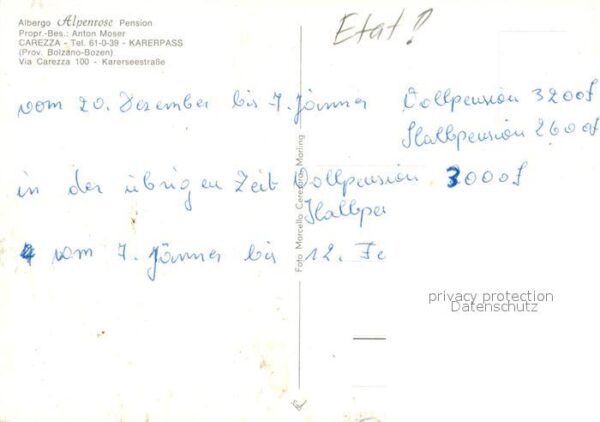 Albergo Alpenrose Pension
Propr.-Bes.: Anton Moser
CAREZZA - Tel. 61-0-39 - KARERPASS
(Prov. Bolzano-Bozen)
Via Carezza 100 - Karerseestraße
Etat!
vom 20. Dezember bis 7. Jänner Vollpension 3200
Halbpension 2600
in der übrigen Zeit Vollpension 3000
Halbpe
vom 7. Jänner bis 12. Fe
Foto Marcello Moling
privacy protection
Datenschutz